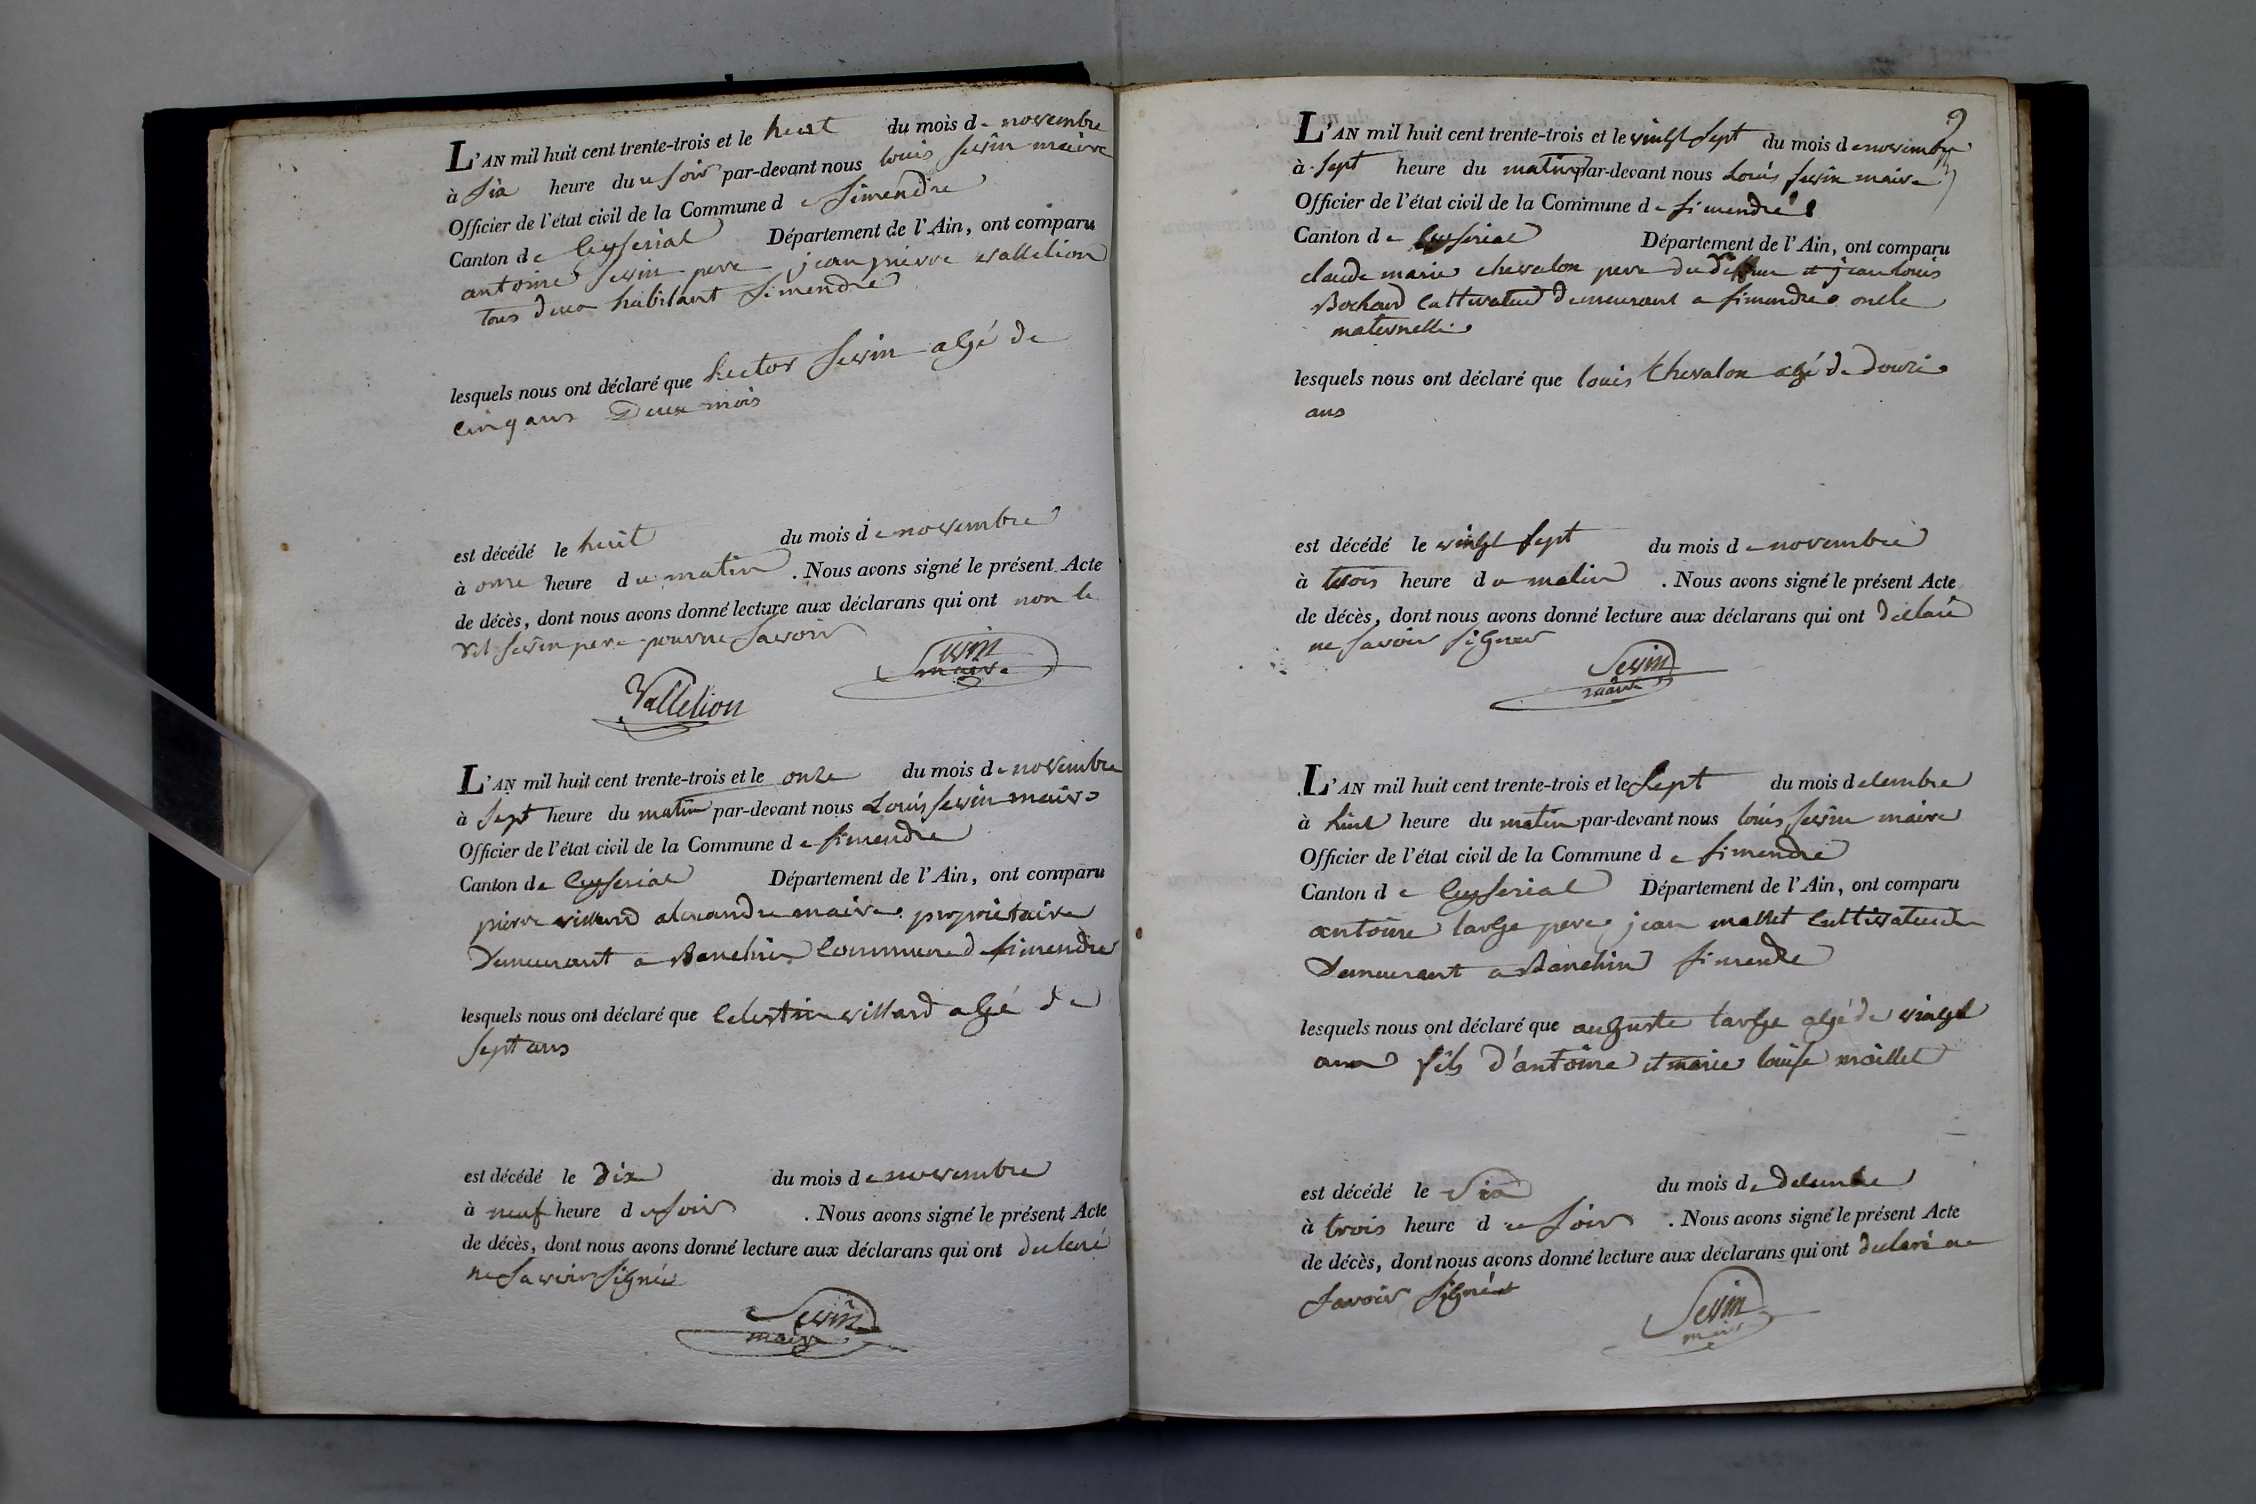 L'AN mil huit cent trente-trois et le huit du mois de novembre
à six heure du soir par-devant nous louis sevin maire
Officier de l'état civil de la Commune de simendre
Canton de Ceyseriat Département de l'Ain, ont comparu
antoine sevin pere jean pierre vallelion
tous deux habitant simendre
lesquels nous ont déclaré que hector sevin algé de
cinq ans Deux mois
est décédé le huit du mois de novembre
à onze heure du matin . Nous avons signé le présent Acte
de décès, dont nous avons donné lecture aux déclarans qui ont non le
dit sevin pere pour ne savoir
Sevin
maire
Vallelion
L'AN mil huit cent trente-trois et le onze du mois de novembre
à sept heure du matin par-devant nous Louis sevin maire
Officier de l'état civil de la Commune de simendre
Canton de Ceyseriat Département de l'Ain, ont comparu
pierre villard alexandre maire propriétaire
Demeurant a Banchin Commune de simendre
lesquels nous ont déclaré que Celestin villard algé de
sept ans
est décédé le dix du mois de novembre
à neuf heure du soir . Nous avons signé le présent Acte
de décès, dont nous avons donné lecture aux déclarans qui ont declaré
ne savoir signée
Sevin
maire
9
L'AN mil huit cent trente-trois et le vingt sept du mois de novembre
à sept heure du matin par-devant nous Louis sevin maire
Officier de l'état civil de la Commune de simendre
Canton de Ceyseriat Département de l'Ain, ont comparu
claude marie chevalon pere du et jean louis
Bochard Cultivateur demeurant a simendre oncle
maternelle
lesquels nous ont déclaré que louis Chevalon algé de douze
ans
est décédé le vingt sept du mois de novembre
à trois heure du matin . Nous avons signé le présent Acte
de décès, dont nous avons donné lecture aux déclarans qui ont declaré
ne savoir signer
Sevin
maire
L'AN mil huit cent trente-trois et le sept du mois decembre
à huit heure du matin par-devant nous louis sevin maire
Officier de l'état civil de la Commune de simendre
Canton de Ceyseriat Département de l'Ain, ont comparu
antoine large pere jean maillet Cultivateur
Demeurant a Banchin simendre
lesquels nous ont déclaré que auguste large algé de vingt
ans fils d'antoine et marie louise maillet
est décédé le six du mois de decembre
à trois heure du soir . Nous avons signé le présent Acte
de décès, dont nous avons donné lecture aux déclarans qui ont declaré ne
savoir signér
Sevin
maire